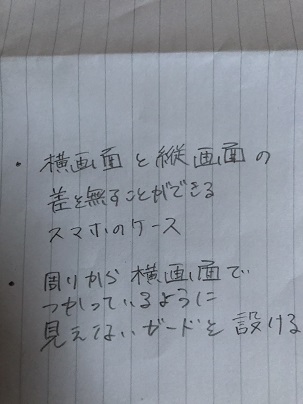 ・横画面と縦画面の
差を無すことができる
スマホのケース
・周りから横画面で
つかっているように
見えないガードを設ける